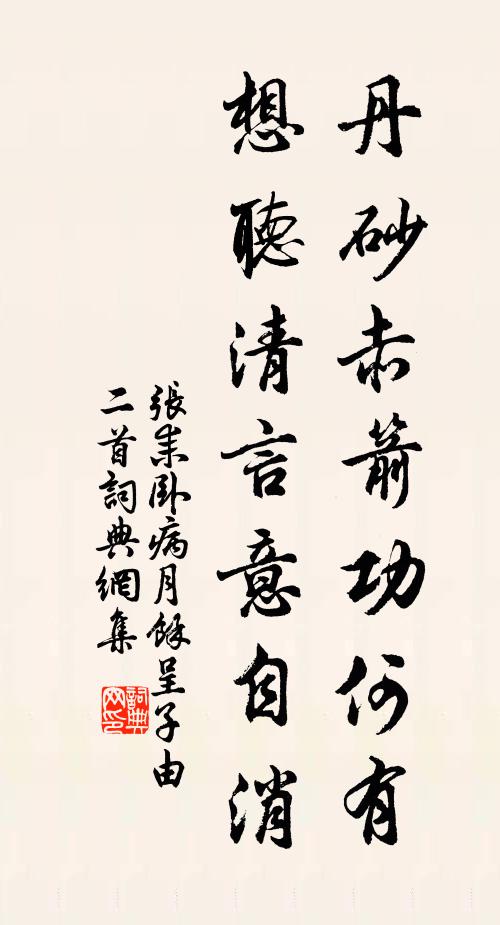 丹砂赤箭功何有
想聽清言意自消
張耒臥病月餘呈子由
二首詞典網集
詞典網印